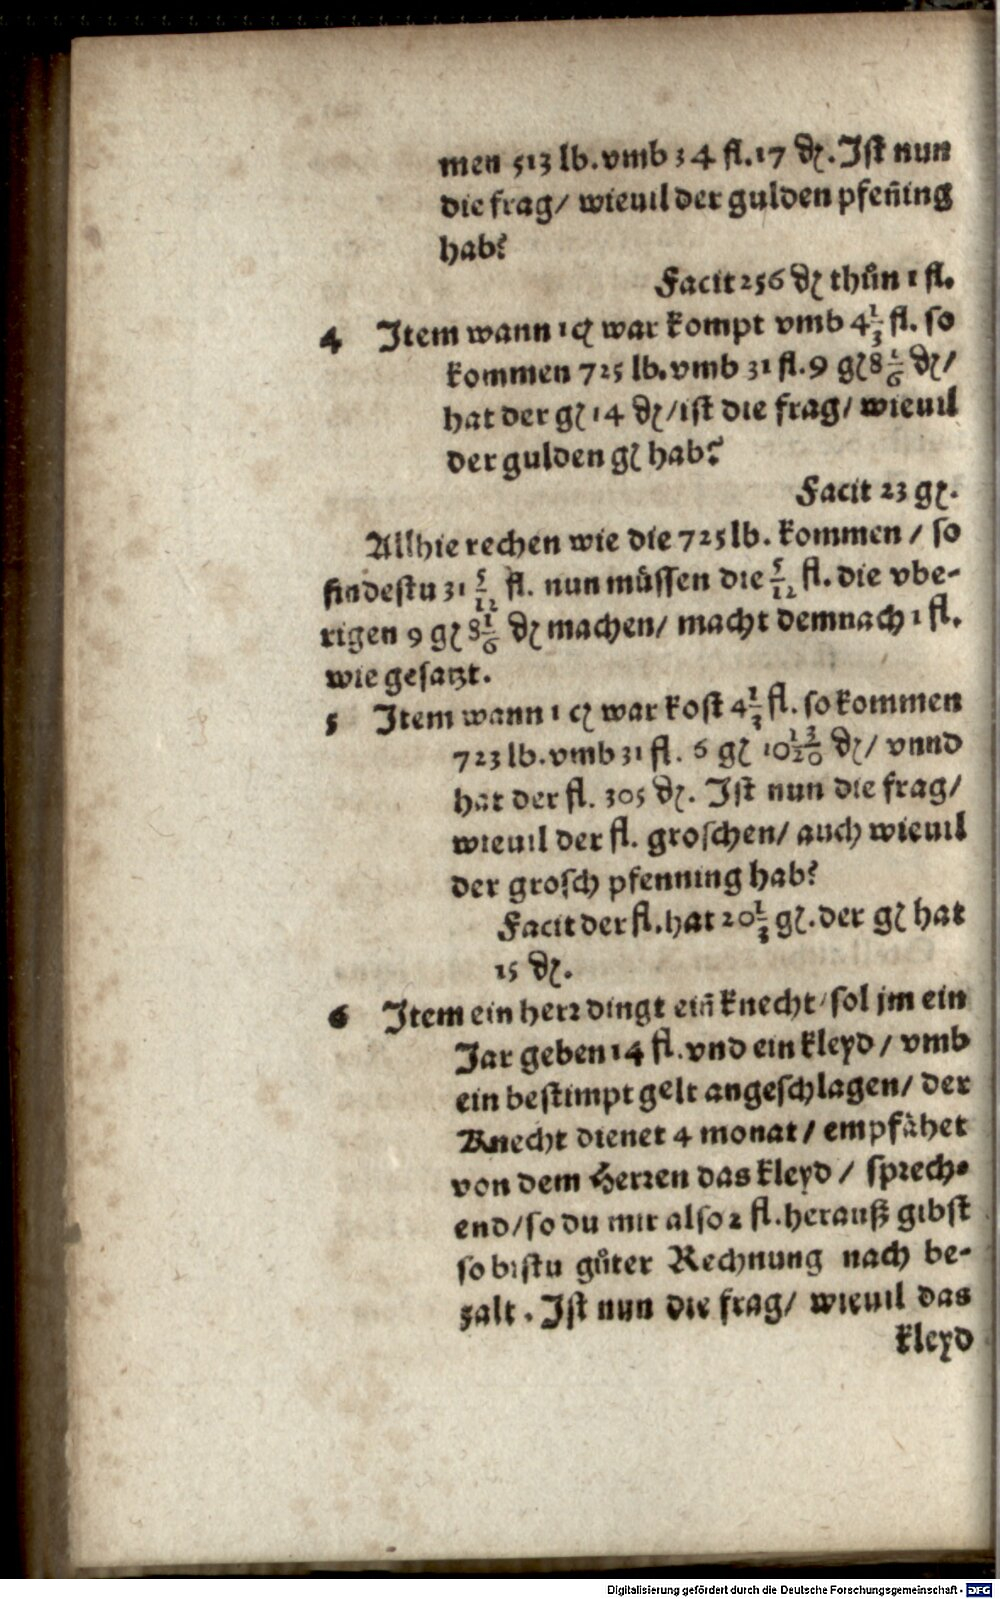 men 513 lb. vmb 34 fl. 17 ₰. Ist nun
die frag/ wieuil der gulden pfen̄ing
hab?
Facit 256 ₰ thůn 1 fl.
4 Item wann 1 cz war kompt vmb 4 1/3 fl. so
kommen 725 lb. vmb 31 fl. 9 gz 8 1/6 ₰/
hat der gz 14 ₰/ ist die frag/ wieuil
der gulden gz hab?
Facit 23 gz.
Allhie rechen wie die 725 lb. kommen / so
findestu 31 5/12 fl. nun müssen die 5/12 fl. die vbe-
rigen 9 gz 8 1/6 ₰ machen/ macht demnach 1 fl.
wie gesatzt.
5 Item wann 1 cz war kost 4 1/3 fl. so kommen
723 lb. vmb 31 fl. 6 gz 10 13/20 ₰/ vnnd
hat der fl. 305 ₰. Ist nun die frag/
wieuil der fl. groschen/ auch wieuil
der grosch pfenning hab?
Facit der fl. hat 20 1/3 gz. der gz hat
15 ₰.
6 Item ein herr dingt ein̄ knecht/ sol jm ein
Jar geben 14 fl. vnd ein kleyd / vmb
ein bestimpt gelt angeschlagen/ der
Knecht dienet 4 monat / empfähet
von dem Herren das kleyd / sprech-
end/ so du mir also 2 fl. herauß gibst
so bistu gůter Rechnung nach be-
zalt. Ist nun die frag/ wieuil das
kleyd
Digitalisierung gefördert durch die Deutsche Forschungsgemeinschaft - DFG